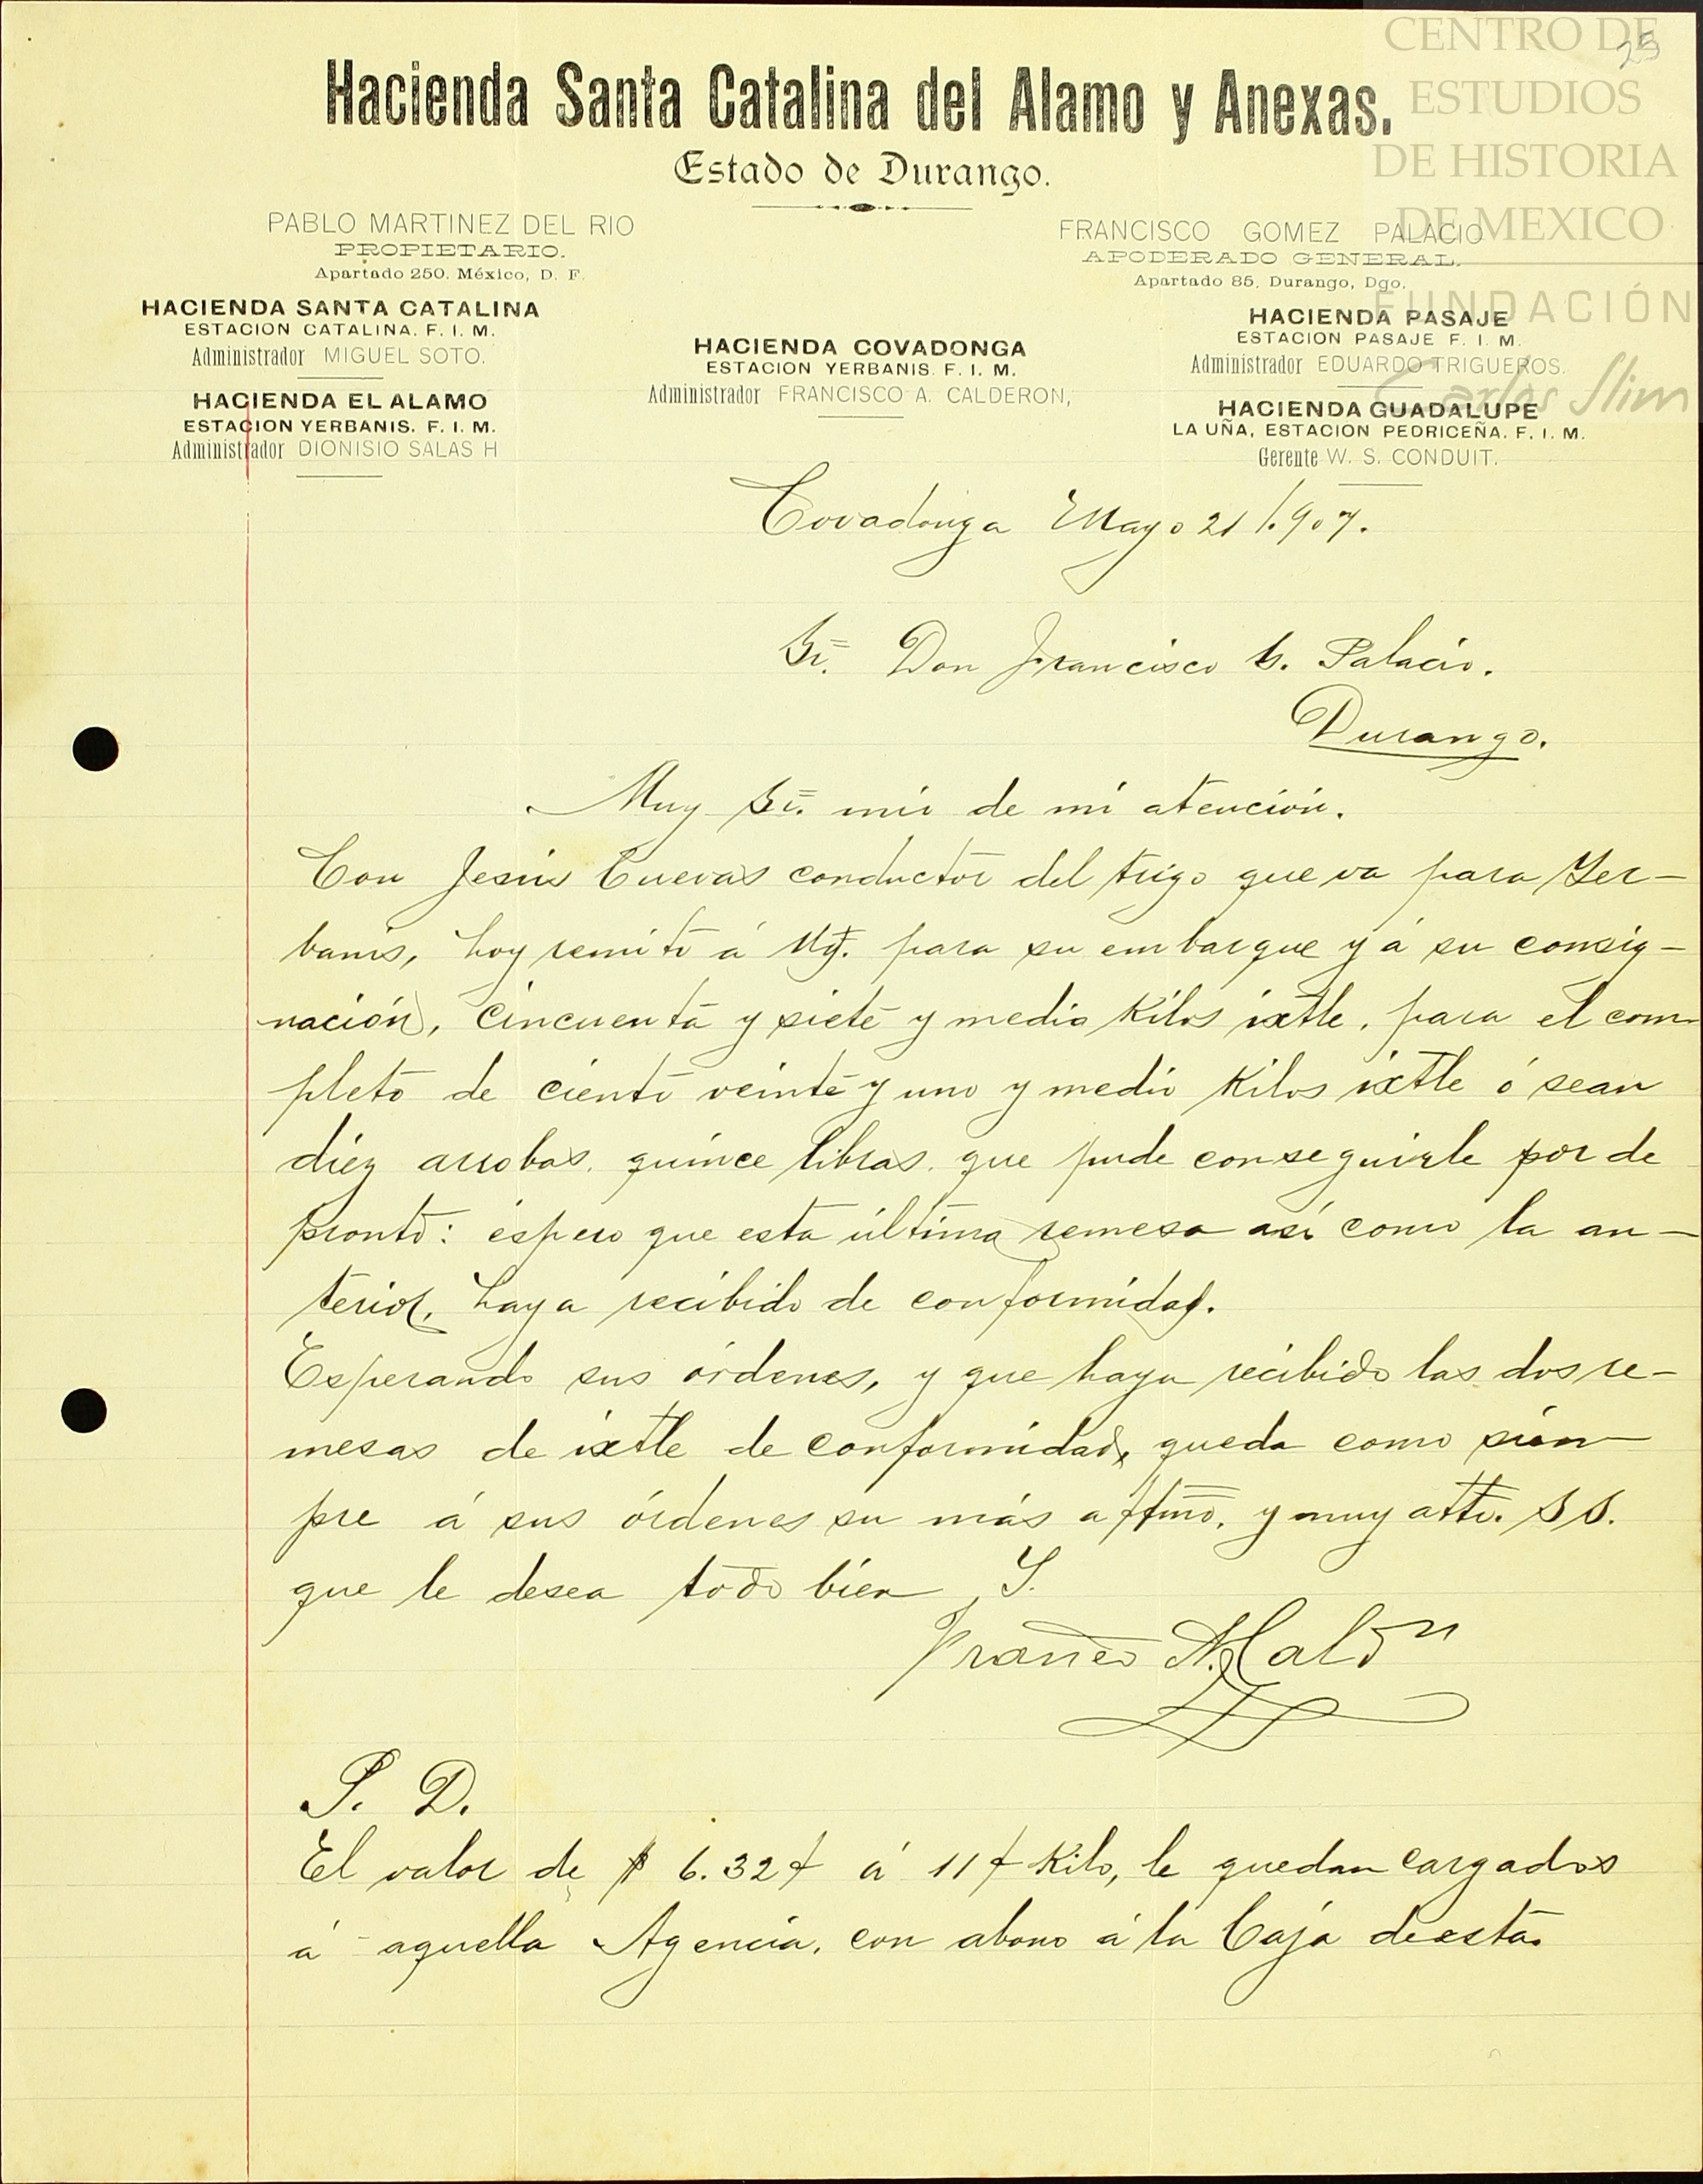 25
CENTRO DE
ESTUDIOS
DE HISTORIA
DE MEXICO
FUNDACIÓN
Carlos Slim
Hacienda Santa Catalina del Alamo y Anexas.
Estado de Durango.
PABLO MARTINEZ DEL RIO
PROPIETARIO.
Apartado 250. México, D. F.
FRANCISCO GOMEZ PALACIO
APODERADO GENERAL.
Apartado 85. Durango, Dgo.
HACIENDA SANTA CATALINA
ESTACION CATALINA. F. I. M.
Administrador MIGUEL SOTO.
HACIENDA EL ALAMO
ESTACION YERBANIS. F. I. M.
Administrador DIONISIO SALAS H
HACIENDA COVADONGA
ESTACION YERBANIS. F. I. M.
Administrador FRANCISCO A. CALDERON,
HACIENDA PASAJE
ESTACION PASAJE F. I. M.
Administrador EDUARDO TRIGUEROS.
HACIENDA GUADALUPE
LA UÑA, ESTACION PEDRICEÑA. F. I. M.
Gerente W. S. CONDUIT.
Covadonga Mayo 21/.907.
Sr. Don Francisco G. Palacio.
Durango.
Muy Sr. mio de mi atención.
Con Jesús Cuevas conductor del trigo que va para Yer-
banis, hoy remito á Ud. para su embarque y á su consig-
nación, cincuenta y siete y medio Kilos ixtle, para el com-
pleto de ciento veinte y uno y medio Kilos ixtle ó sean
diez arrobas, quince libras, que pude conseguirle por de
pronto: espero que esta última remesa así como la an-
terior, haya recibido de conformidad.
Esperando sus órdenes, y que haya recibido las dos re-
mesas de ixtle de conformidad, queda como siem-
pre á sus órdenes su más affmo. y muy atto. S S.
que le desea todo bien, Y.
Franco A. Caldn
P. D.
El valor de $ 6.32¢ á 11¢ Kilo, le quedan cargados
á aquella Agencia, con abono á la Caja de esta.